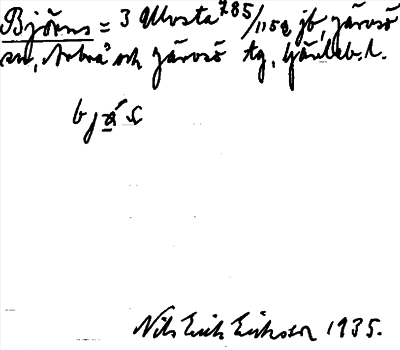 Björns = 3 Ulvsta 785/1152 jb, Järvsö
sn, Arbrå och Järvsö tg, Gävleb. l.
Nils Erik Eriksson 1935.